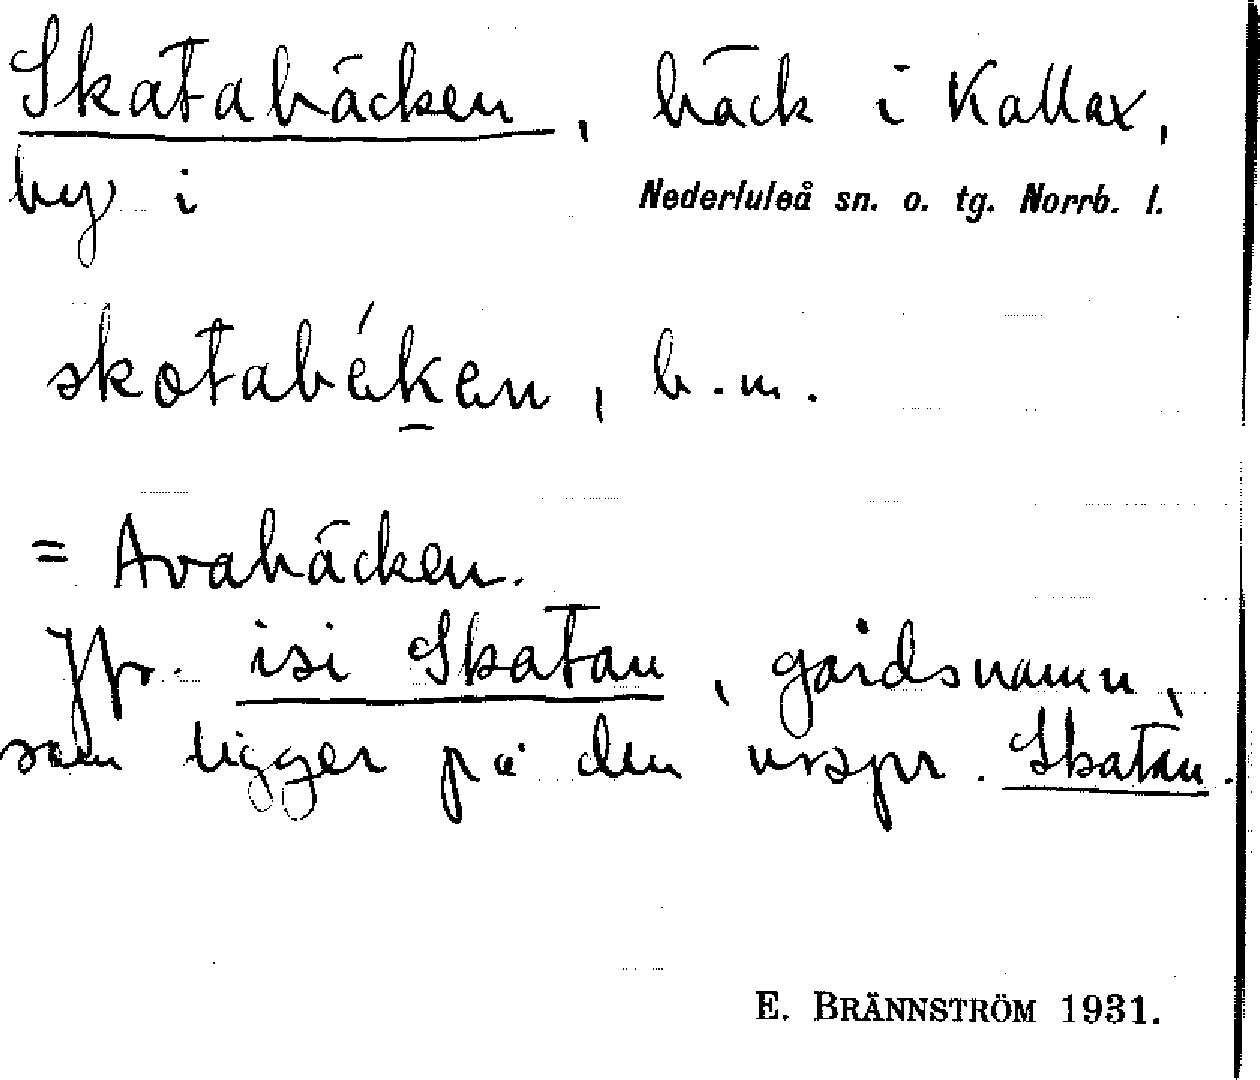 Skatabäcken, bäck i Kallax,
by i Nederluleå sn. o. tg. Norrb. l.
skotabéken, b.m.
= Avabäcken.
Jfr. isi Skatan, gårdsnamn,
som ligger på den urspr. Skatan.
E. BRÄNNSTRÖM 1931.